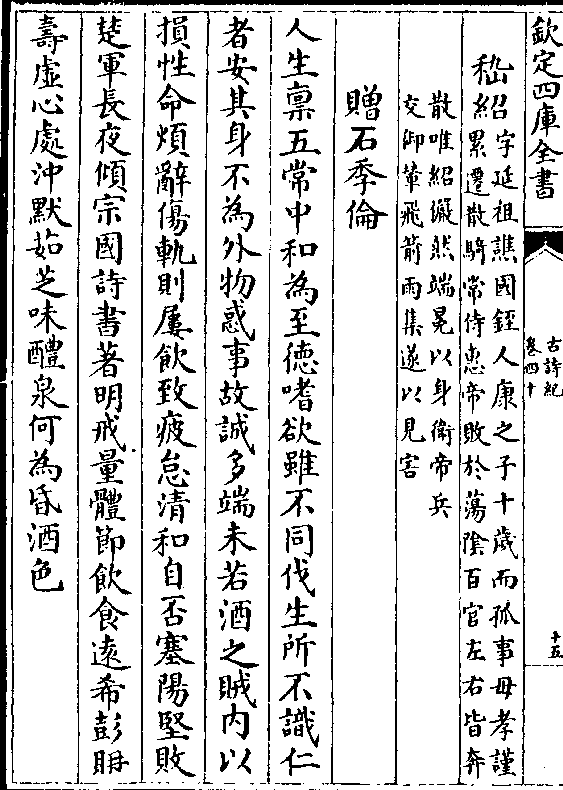 欽定四庫全書
古詩紀
卷四十
十五
嵇紹
字延祖譙國銍人康之子十歲而孤事母孝謹
累遷散騎常侍惠帝敗於蕩陰百官左右皆奔
散唯紹儼然端冕以身衛帝兵
交御輦飛箭雨集遂以見害
贈石季倫
人生禀五常中和為至德嗜欲雖不同伐生所不識仁
者安其身不為外物惑事故誠多端未若酒之賊内以
損性命煩辭傷軌則屢飲致疲怠清和自否塞陽堅敗
楚軍長夜傾宗國詩書著明戒量體節飲食遠希彭聃
壽虛心處沖默茹芝味醴泉何為昏酒色